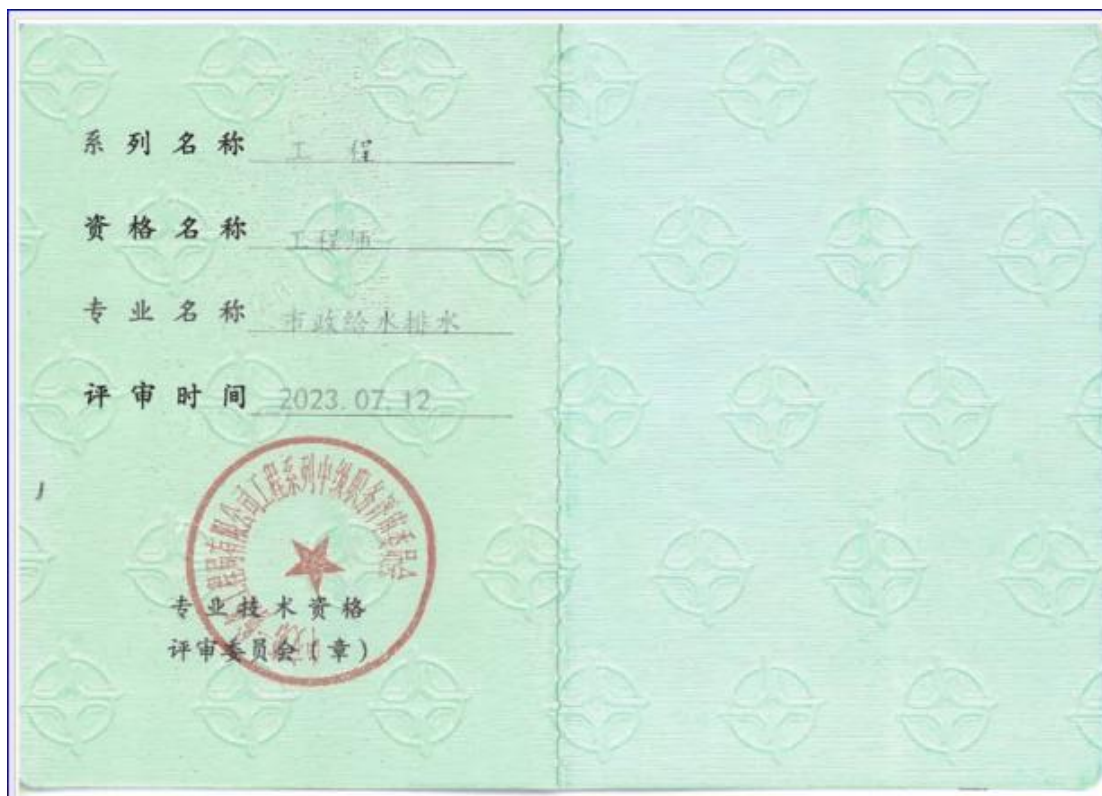 系列名称 工程
资格名称 工程师
专业名称 市政给水排水
评审时间 2023.07.12
工程局有限公司工程系列中级职务评审委员会
专业技术资格
评审委员会（章）